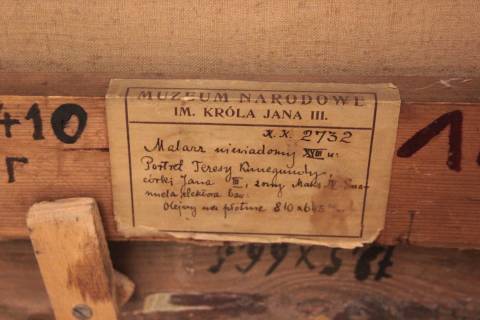 410
r
MUZEUM NARODOWE
IM. KRÓLA JANA III.
K. K. 2732
Malarz niewiadomy XVIII w:
Portret Teresy Kunegundy,
córki Jana III, żony Maks. II Ema-
nuela elektora baw.
Olejny na płótnie 810x645
1
72.5x66.5